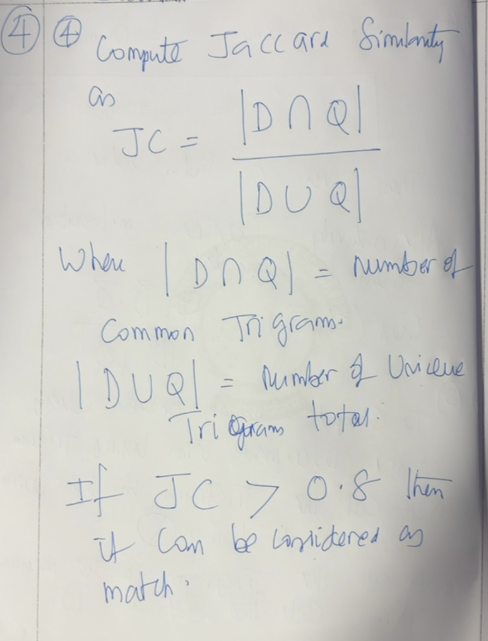 ④ ④ Compute Jaccard Similarity
as
JC = |D ∩ Q|
|D ∪ Q|
When |D ∩ Q| = number of
Common Trigrams.
|D ∪ Q| = number of Unique
Trigrams total.
If JC > 0.8 then
it can be considered as
match.